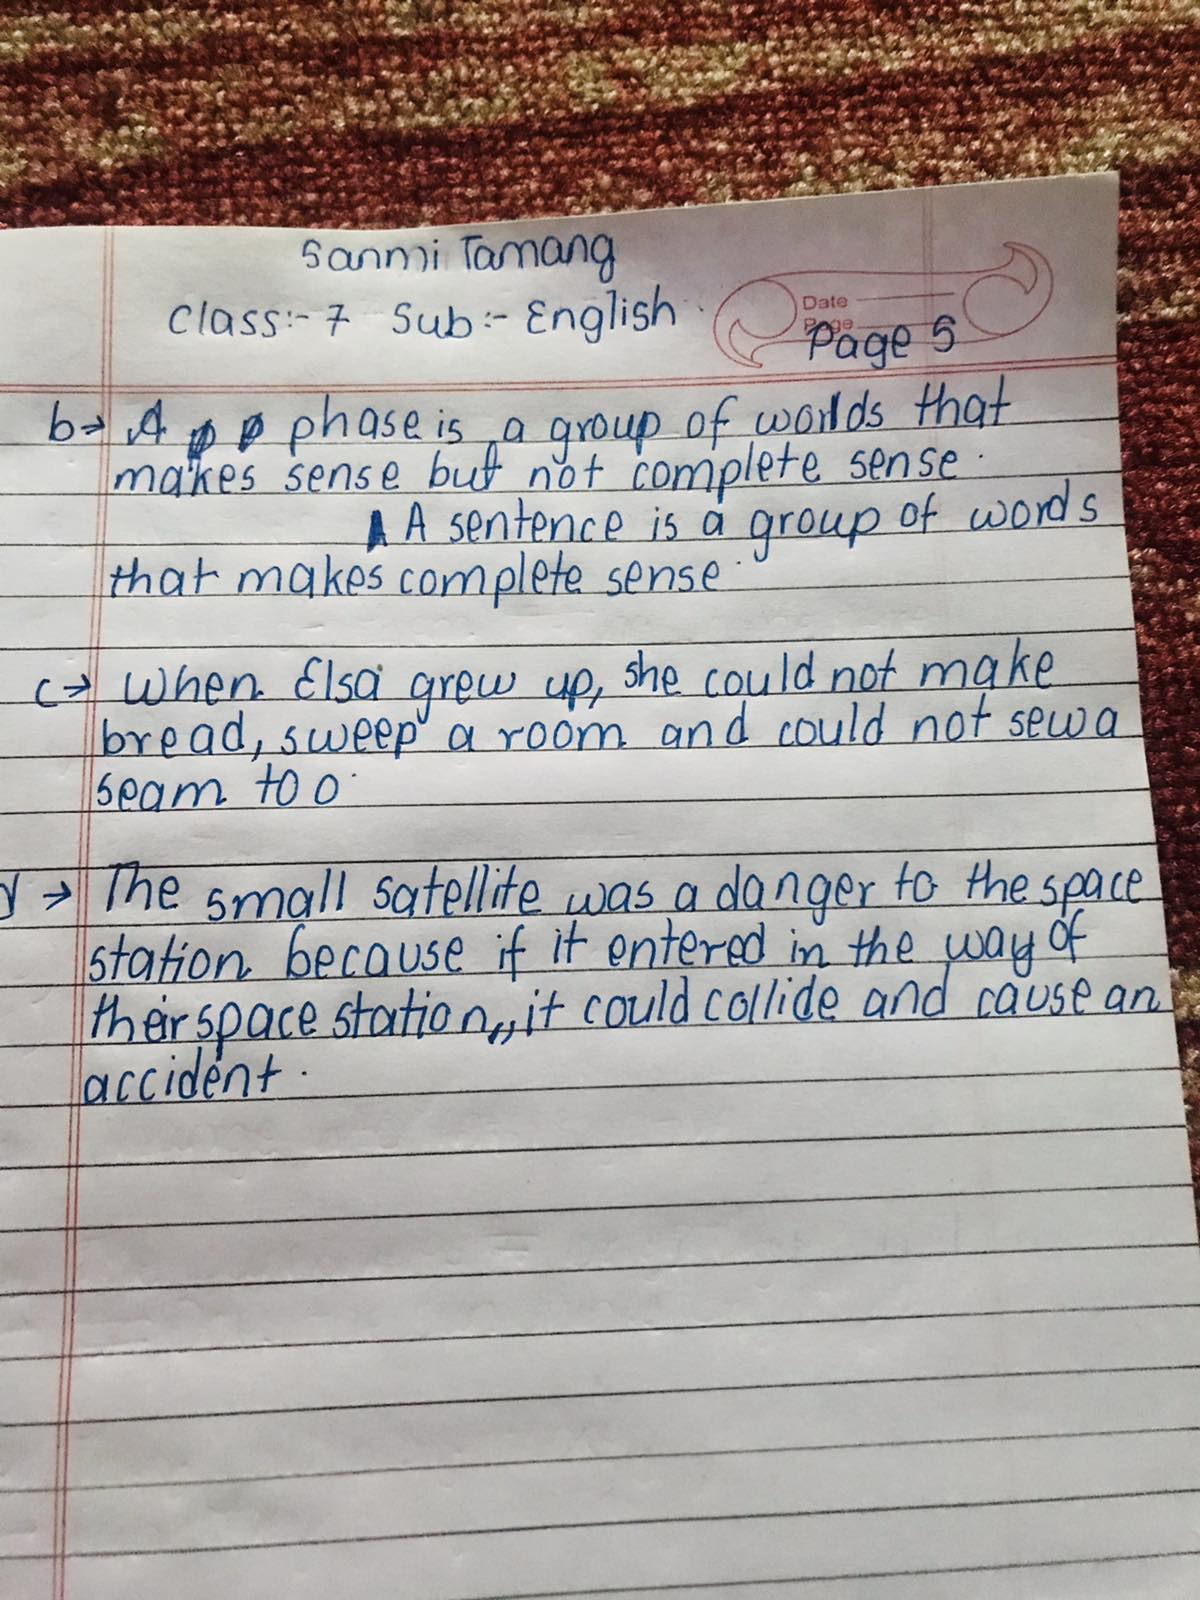 Sanmi Tamang
Class:- 7 Sub:- English
Date
Page
Page 5
b→ A phase is a group of worlds that
makes sense but not complete sense.
A sentence is a group of words
that makes complete sense.
c→ When Elsa grew up, she could not make
bread, sweep a room and could not sew a
seam too.
d→ The small satellite was a danger to the space
station because if it entered in the way of
their space station,,, it could collide and cause an
accident.